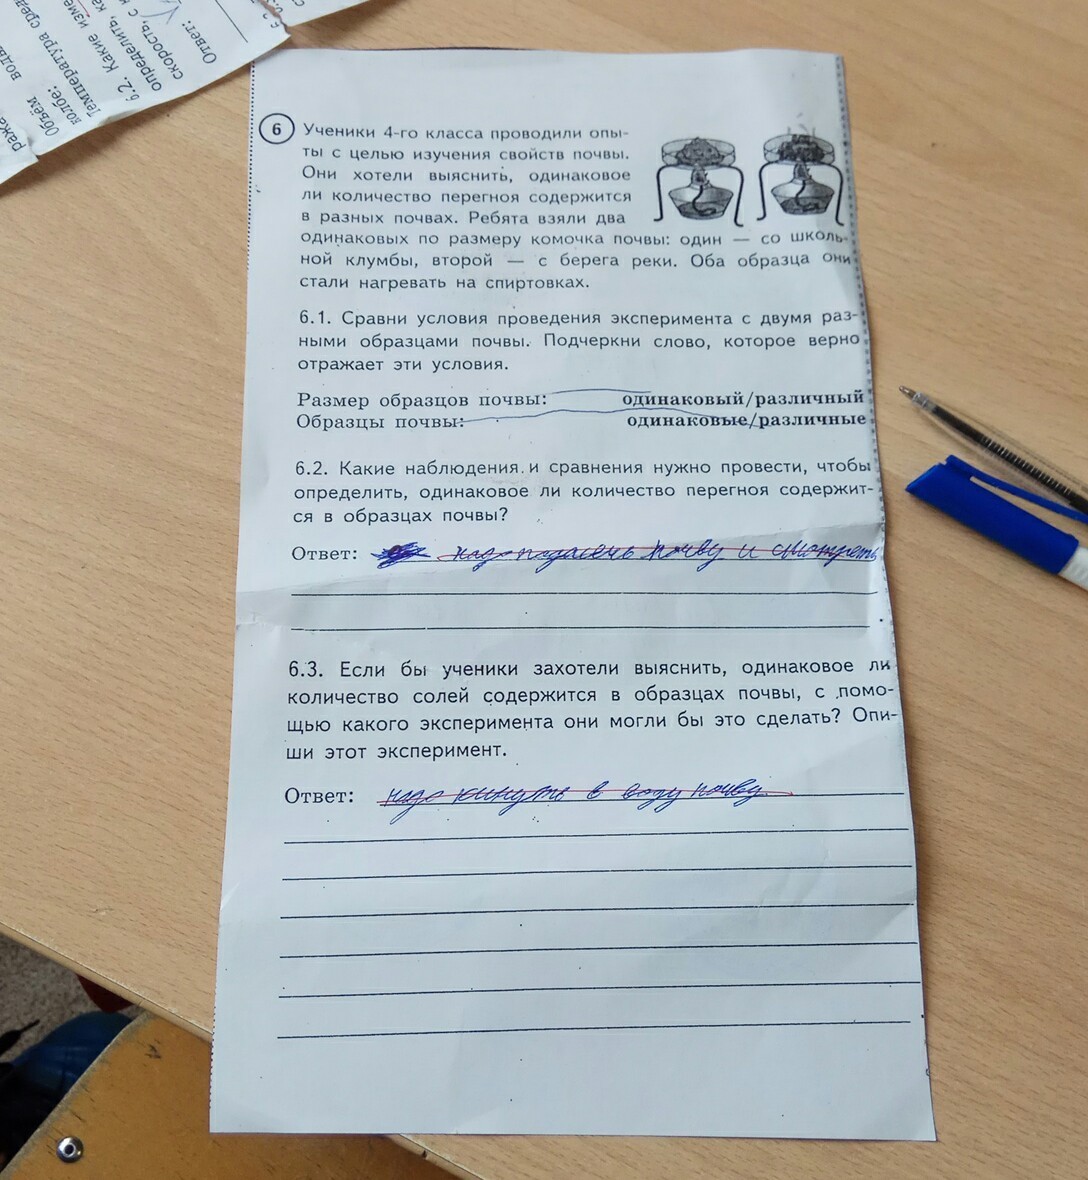 6.2. Какие изме
определить, ка
скорость, с к
Ответ:
Объём
колбе:
Температура сред
воды
ража
6 Ученики 4-го класса проводили опы-
ты с целью изучения свойств почвы.
Они хотели выяснить, одинаковое
ли количество перегноя содержится
в разных почвах. Ребята взяли два
одинаковых по размеру комочка почвы: один — со школь-
ной клумбы, второй — с берега реки. Оба образца они
стали нагревать на спиртовках.
6.1. Сравни условия проведения эксперимента с двумя раз-
ными образцами почвы. Подчеркни слово, которое верно
отражает эти условия.
Размер образцов почвы: одинаковый/различный
Образцы почвы: одинаковые/различные
6.2. Какие наблюдения и сравнения нужно провести, чтобы
определить, одинаковое ли количество перегноя содержит-
ся в образцах почвы?
Ответ: надо почву и смотреть
6.3. Если бы ученики захотели выяснить, одинаковое ли
количество солей содержится в образцах почвы, с помо-
щью какого эксперимента они могли бы это сделать? Опи-
ши этот эксперимент.
Ответ: надо кинуть в воду почву